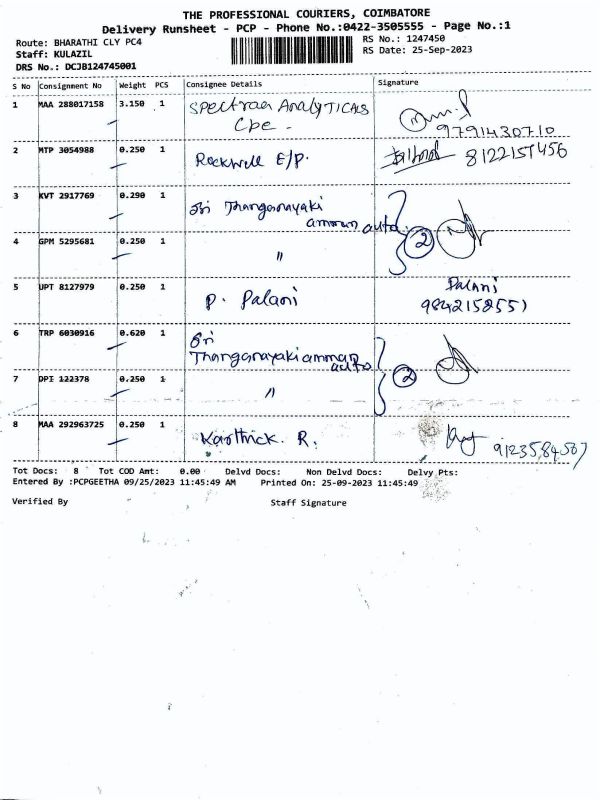 THE PROFESSIONAL COURIERS, COIMBATORE
Delivery Runsheet - PCP - Phone No.:0422-3505555 - Page No.:1
Route: BHARATHI CLY PC4
RS No.: 1247450
Staff: KULAZIL
RS Date: 25-Sep-2023
DRS No.: DCJB124745001
S No Consignment No Weight PCS Consignee Details Signature
1 MAA 288017158 3.150 1 Spectraa Analyticals
Cbe.
9791430710
2 MTP 3054988 0.250 1 Rockwell E/P. 8122157456
3 KVT 2917769 0.290 1 Sri Thanganayaki
amman auto.
2
4 GPM 5295681 0.250 1 "
5 UPT 8127979 0.250 1 P. Palani Palani
9842158551
6 TRP 6030916 0.620 1 Sri
Thanganayaki amman
auto
2
7 DPI 122378 0.250 1 "
8 MAA 292963725 0.250 1 Karthick. R. 9123584567
Tot Docs: 8 Tot COD Amt: 0.00 Delvd Docs: Non Delvd Docs: Delvy Pts:
Entered By :PCPGEETHA 09/25/2023 11:45:49 AM Printed On: 25-09-2023 11:45:49
Verified By Staff Signature